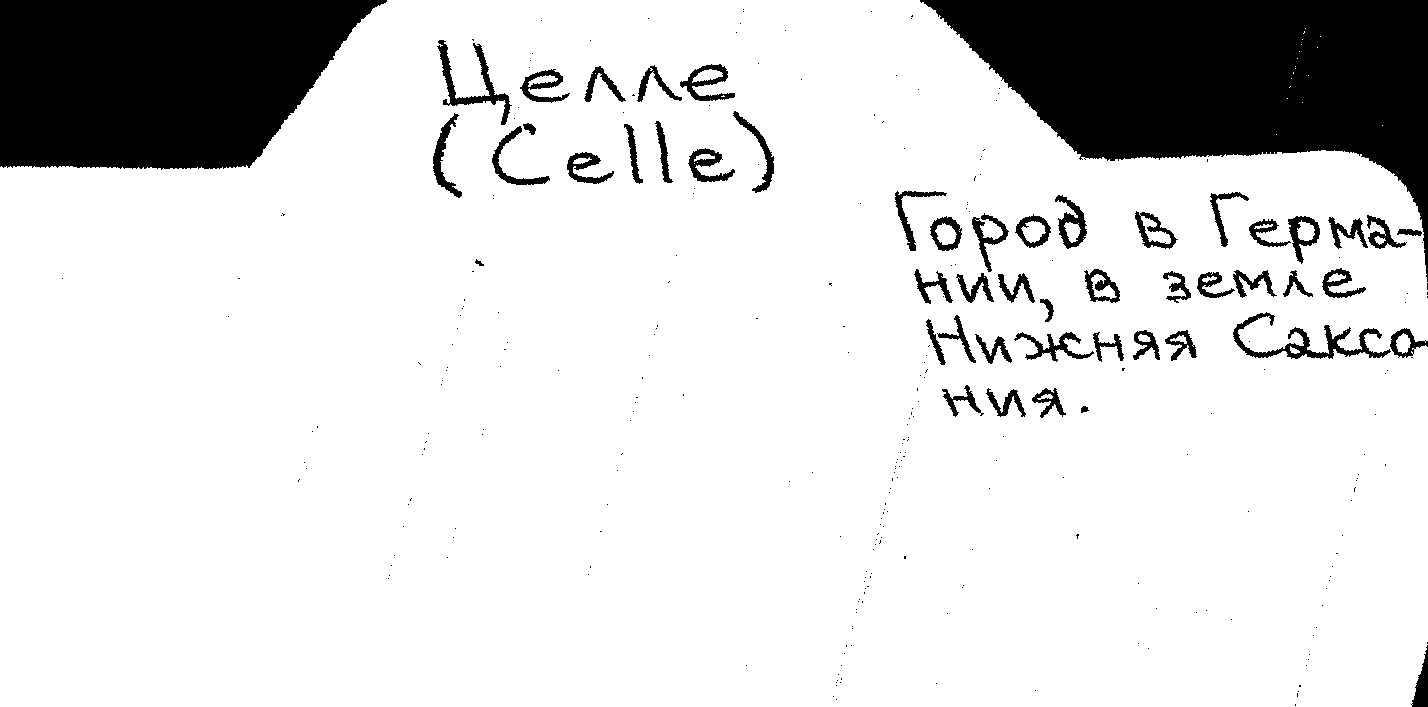 Целле
(Celle)
Город в Герма-
нии, в земле
Нижняя Саксо-
ния.